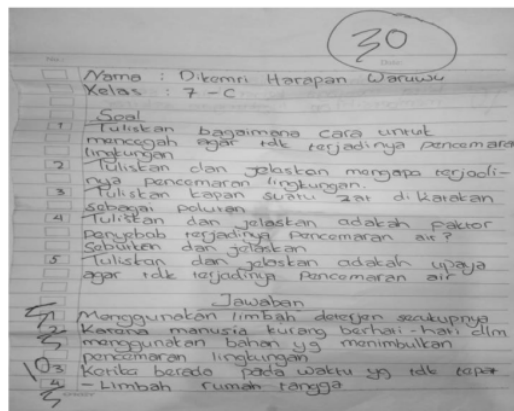 30
Nama : Dikemri Harapan Waruwu
Kelas : 7 - C
Soal
1 Tuliskan bagaimana cara untuk
mencegah agar tdk terjadinya pencemara
lingkungan
2 Tuliskan dan jelaskan mengapa terjadi-
nya pencemaran lingkungan.
3 Tuliskan kapan suatu zat dikatakan
sebagai polutan
4 Tuliskan dan jelaskan adakah paktor
penyebab terjadinya pencemaran air?
Sebutkan dan jelaskan
5 Tuliskan dan jelaskan adakah upaya
agar tdk terjadinya pencemaran air
Jawaban
Menggunakan limbah deterjen secukupnya
Karena manusia kurang berhati-hati dlm
menggunakan bahan yg menimbulkan
pencemaran lingkungan
10 3 Ketika berada pada waktu yg tdk tepat
4 - Limbah rumah tangga